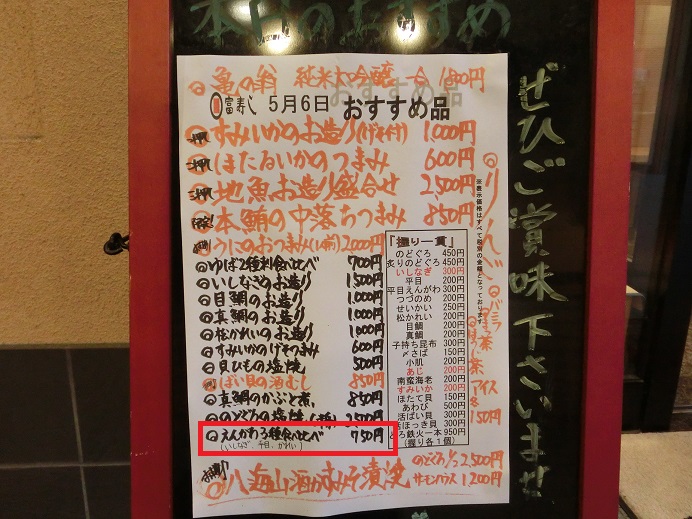 本日のおすすめ
ぜひご賞味下さいませ
亀の翁 純米大吟醸 一合 1,800円
富寿し 5月6日 おすすめ品
すみいかのお造り(げそ付) 1,000円
ほたるいかのつまみ 600円
地魚お造り盛合せ 2,500円
本鮪の中落ちつまみ 850円
うにのおつまみ(1人前) 2,000円
ゆば2種利食べ比べ 700円
いしなぎのお造り 1,500円
目鯛のお造り 1,000円
真鯛のお造り 1,000円
松かれいのお造り 1,000円
すみいかのげそつまみ 600円
貝ひもの塩焼 500円
ばい貝の酒むし 850円
真鯛のかぶと煮 850円
のどぐろの塩焼 2,500円
えんがわ3種食べ比べ 750円
(いしなぎ、平目、かれい)
八海山酒かすみそ漬焼
のどぐろ1/2 2,500円
サーモンハラス 1,200円
「握り一貫」
のどぐろ 450円
炙りのどぐろ 450円
いしなぎ 300円
平目 200円
平目えんがわ 300円
つづのめ 200円
せいかい 250円
松かれい 200円
目鯛 200円
真鯛 200円
子持ち昆布 300円
〆さば 150円
小肌 200円
あじ 200円
南蛮海老 200円
すみいか 200円
ほたて貝 150円
あわび 500円
活ばい貝 300円
活ほっき貝 300円
とろ鉄火一本 950円
(握り各1個)
※表示価格はすべて税別の金額となっております
りんご
バニラ
まっ茶
ほうじ茶
アイス
各150円